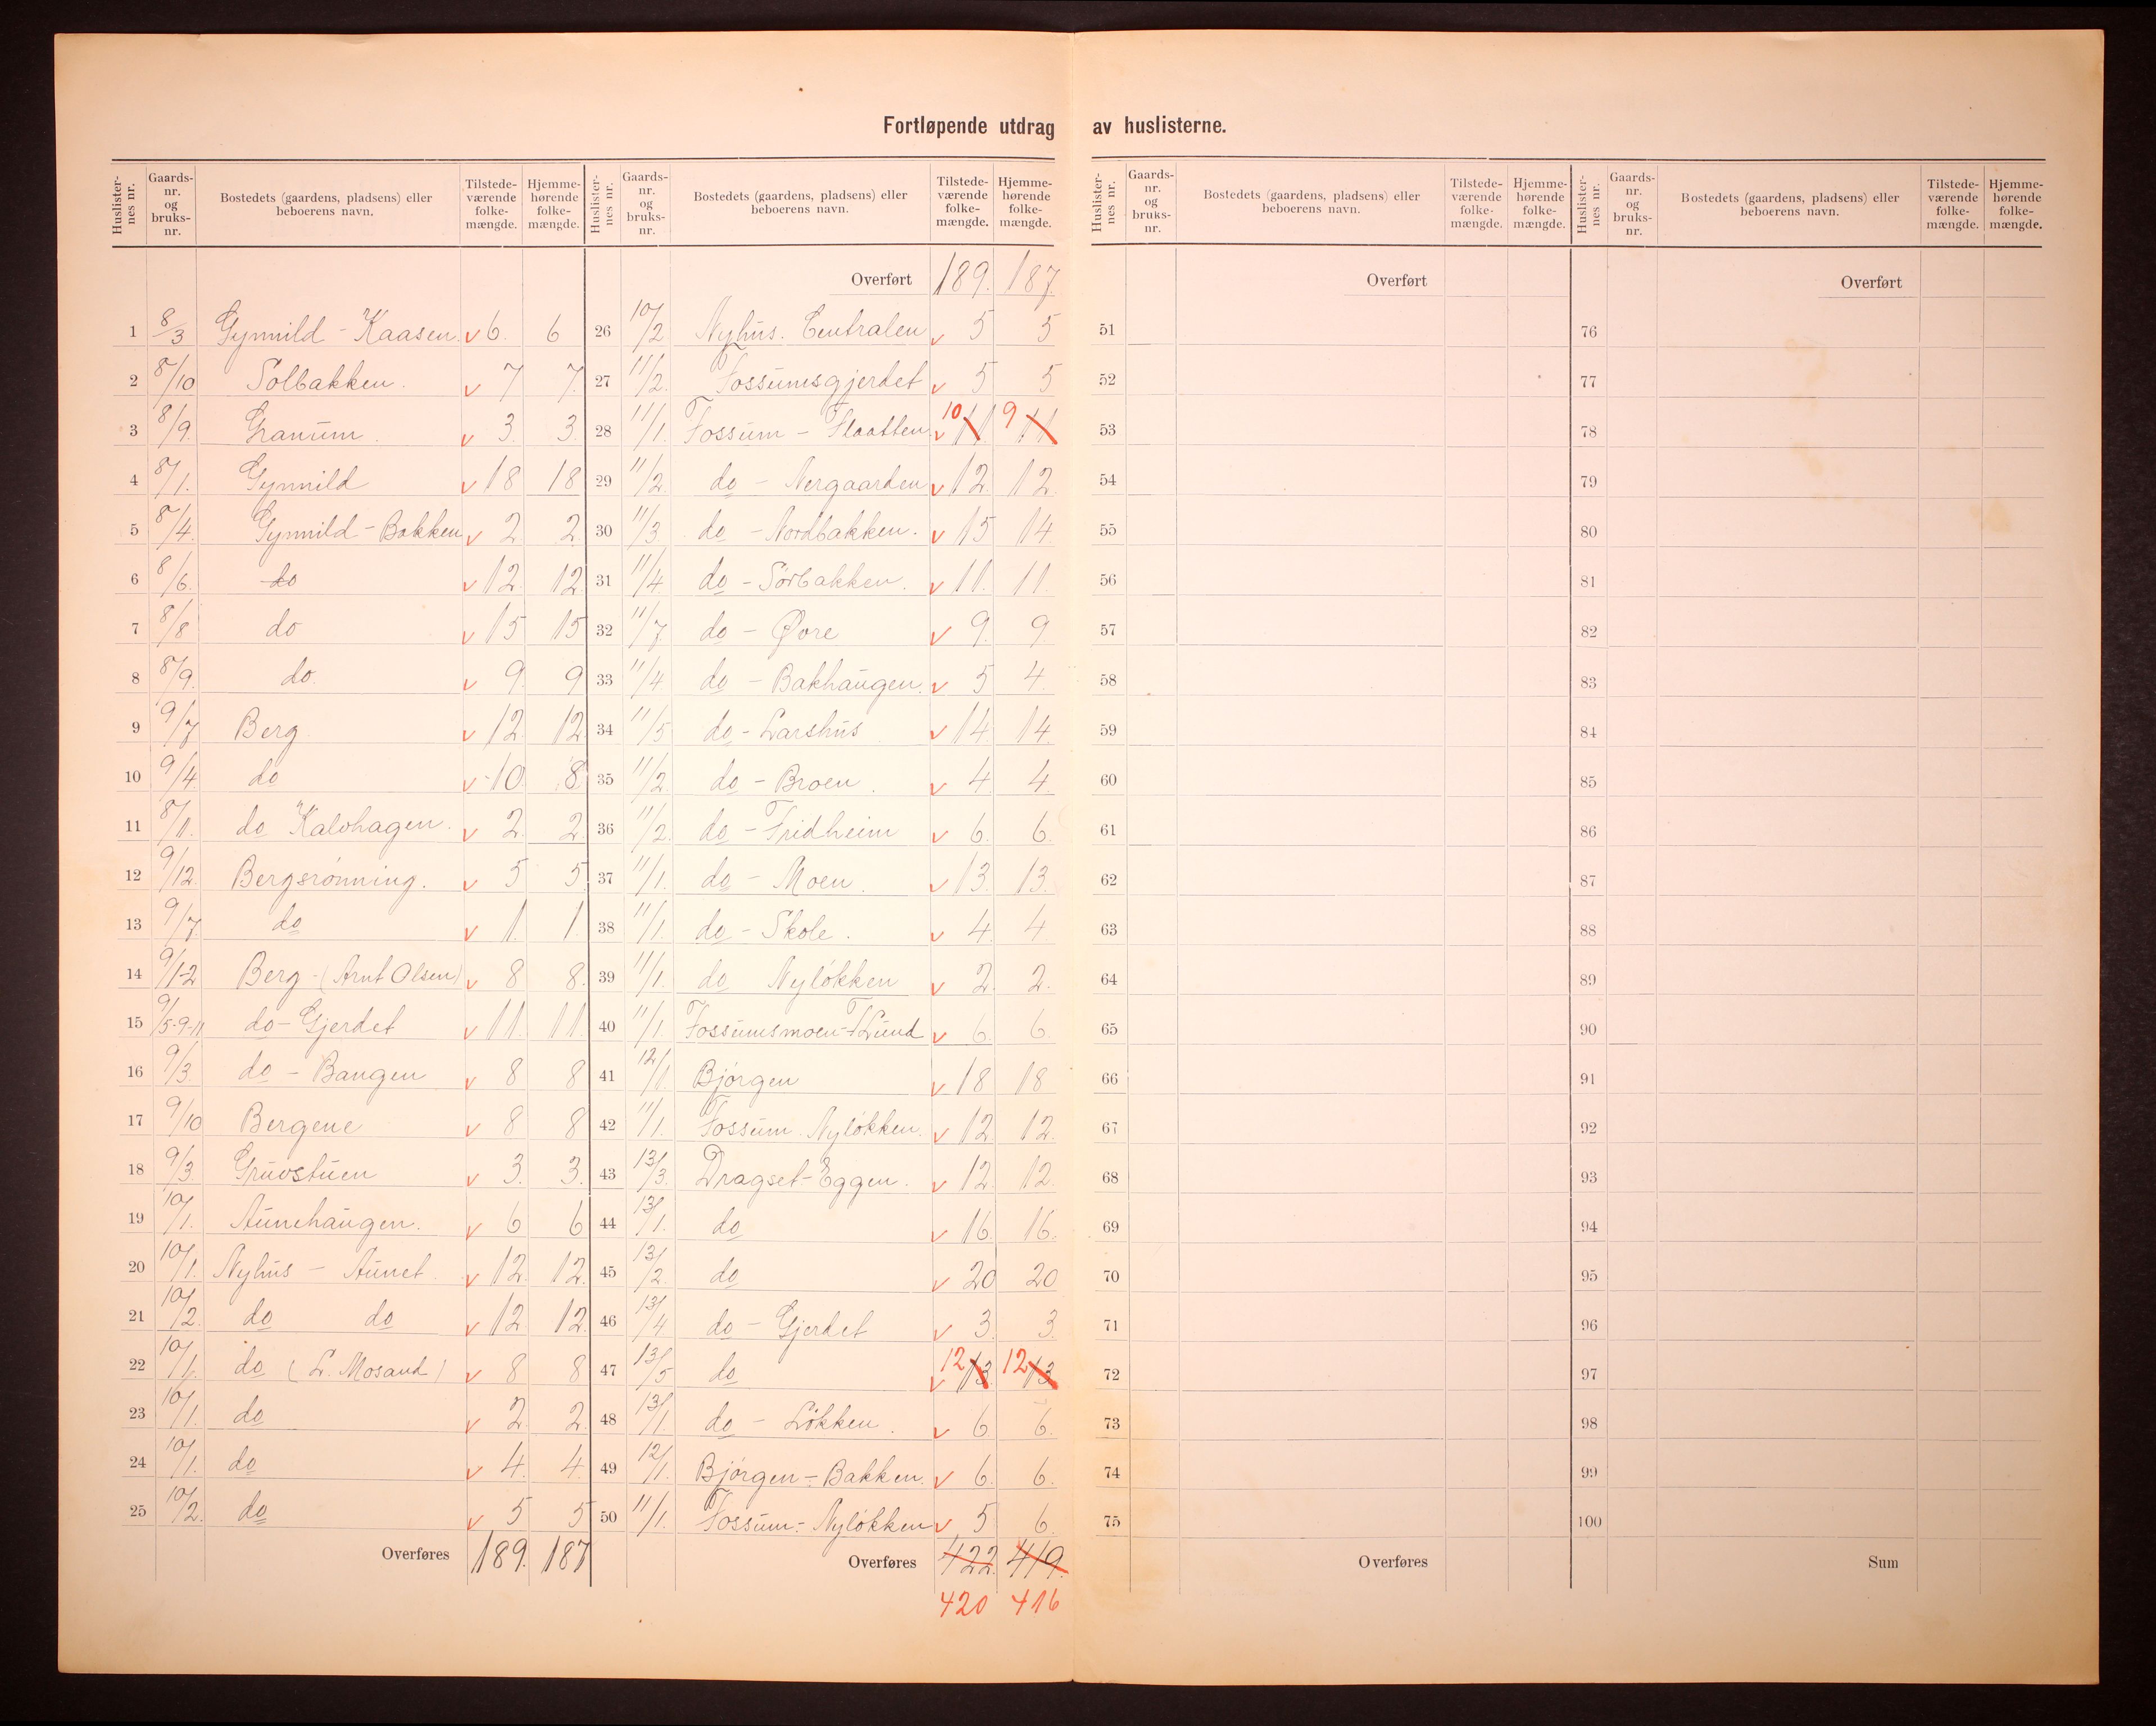 Fortløpende utdrag av huslisternе.
Huslister-nes nr. Gaards-nr. og bruks-nr. Bostedets (gaardens, pladsens) eller beboerens navn. Tilstede-værende folke-mængde. Hjemme-hørende folke-mængde.
1 8/3 Gynnild - Kaasen. v 6. 6
2 8/10 Solbakken. v 7 7.
3 8/9. Granum. v 3. 3.
4 8/1. Gynnild v 18 18
5 8/4. Gynnild - Bakken v 2. 2.
6 8/6. do v 12. 12
7 8/8 do v 15 15
8 8/9. do. v 9. 9
9 9/7 Berg. v 12. 12
10 9/4. do v 10. 8
11 8/11. do Kalvhagen. v 2. 2.
12 9/12. Bergsrønning. v 5 5.
13 9/7. do v 1. 1.
14 9/1-2 Berg - (Arnt Olsen) v 8 8.
15 9/5-9-11 do - Gjerdet v 11. 11.
16 9/3. do - Bangen v 8 8
17 9/10 Bergene v 8 8
18 9/3. Gruvstuen v 3. 3.
19 10/1. Aunehaugen. v 6 6
20 10/1. Nyhus - Aunet. v 12. 12.
21 10/2. do do v 12 12.
22 10/1. do (L. Mosand) v 8 8
23 10/1. do v 2. 2.
24 10/1. do v 4. 4.
25 10/2. do v 5 5
Overføres 189. 187
Huslister-nes nr. Gaards-nr. og bruks-nr. Bostedets (gaardens, pladsens) eller beboerens navn. Tilstede-værende folke-mængde. Hjemme-hørende folke-mængde.
Overført 189. 187.
26 10/2 Nyhus. Centralen v 5 5
27 11/2. Fossumsgjerdet v 5 5
28 11/1. Fossum - Flaatten v 10 11 9 11
29 11/2. do - Nergaarden v 12. 12.
30 11/3. do - Nordbakken. v 15 14.
31 11/4. do - Sørbakken. v 11. 11.
32 11/7. do - Øvre v 9. 9.
33 11/4. do - Bakhaugen. v 5 4.
34 11/5 do - Larshus v 14 14.
35 11/2. do - Broen. v 4. 4.
36 11/2. do - Fridheim v 6. 6.
37 11/1. do - Moen. v 13. 13.
38 11/1. do - Skole. v 4. 4
39 11/1. do Nyløkken v 2. 2.
40 11/1. Fossumsmoen - T. Lund v 6. 6.
41 12/1. Bjørgen v 18 18
42 11/1. Fossum Nyløkken. v 12. 12.
43 13/3. Dragset - Eggen. v 12. 12.
44 13/1. do v 16. 16.
45 13/2. do v 20 20
46 13/4 do - Gjerdet v 3. 3.
47 13/5 do v 12 13 12 13
48 13/1. do - Løkken. v 6 6.
49 12/1. Bjørgen - Bakken. v 6. 6.
50 11/1. Fossum - Nyløkken v 5 6.
Overføres 422. 419.
420 416
Huslister-nes nr. Gaards-nr. og bruks-nr. Bostedets (gaardens, pladsens) eller beboerens navn. Tilstede-værende folke-mængde. Hjemme-hørende folke-mængde.
Overført
51
52
53
54
55
56
57
58
59
60
61
62
63
64
65
66
67
68
69
70
71
72
73
74
75
Overføres
Huslister-nes nr. Gaards-nr. og bruks-nr. Bostedets (gaardens, pladsens) eller beboerens navn. Tilstede-værende folke-mængde. Hjemme-hørende folke-mængde.
Overført
76
77
78
79
80
81
82
83
84
85
86
87
88
89
90
91
92
93
94
95
96
97
98
99
100
Sum